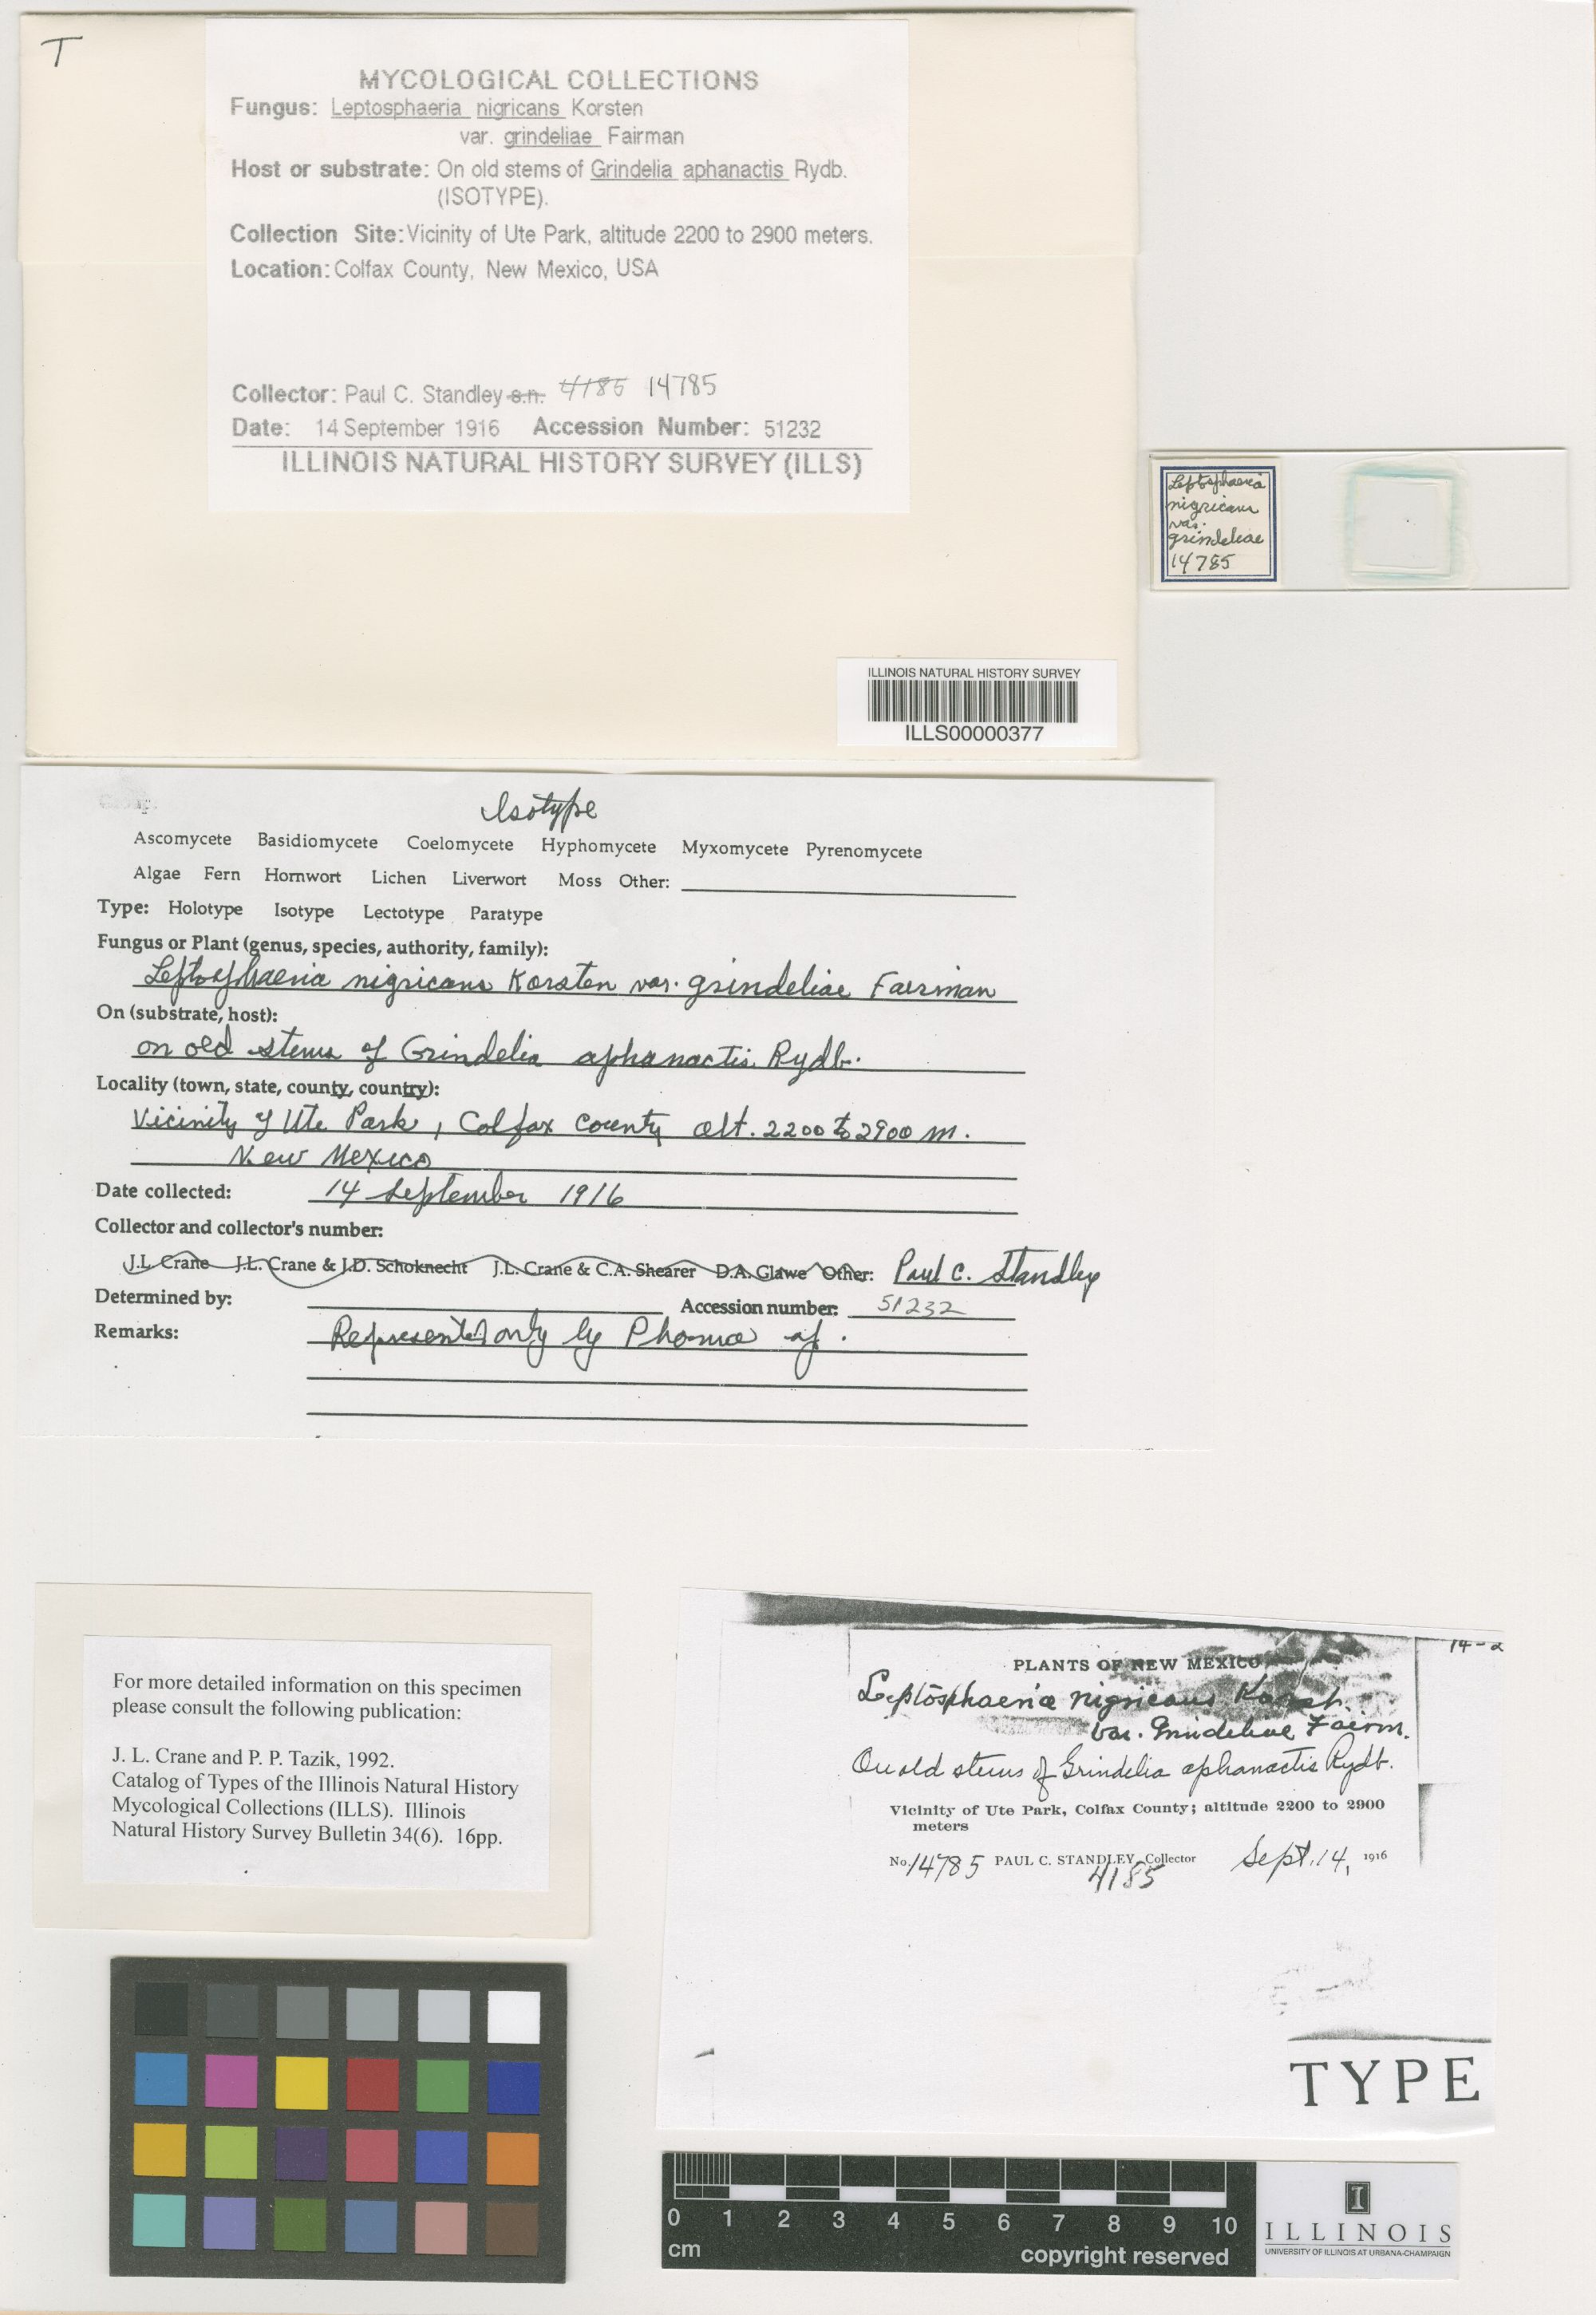 T
MYCOLOGICAL COLLECTIONS
Fungus: Leptosphaeria nigricans Korsten
var. grindeliae Fairman
Host or substrate: On old stems of Grindelia aphanactis Rydb.
(ISOTYPE).
Collection Site: Vicinity of Ute Park, altitude 2200 to 2900 meters.
Location: Colfax County, New Mexico, USA
Collector: Paul C. Standley s.n. 4185 14785
Date: 14 September 1916 Accession Number: 51232
ILLINOIS NATURAL HISTORY SURVEY (ILLS)
Leptosphaeria
nigricans
var.
grindeliae
14785
ILLINOIS NATURAL HISTORY SURVEY
ILLS00000377
Isotype
Ascomycete Basidiomycete Coelomycete Hyphomycete Myxomycete Pyrenomycete
Algae Fern Hornwort Lichen Liverwort Moss Other:
Type: Holotype Isotype Lectotype Paratype
Fungus or Plant (genus, species, authority, family):
Leptosphaeria nigricans Korsten var. grindeliae Fairman
On (substrate, host):
on old stems of Grindelia aphanactis Rydb.
Locality (town, state, county, country):
Vicinity of Ute Park, Colfax County alt. 2200 to 2900 m.
New Mexico
Date collected: 14 September 1916
Collector and collector's number:
J.L. Crane J.L. Crane & J.D. Schoknecht J.L. Crane & C.A. Shearer D.A. Glawe Other: Paul C. Standley
Determined by: Accession number: 51232
Remarks: Represented only by Phoma
For more detailed information on this specimen
please consult the following publication:
J. L. Crane and P. P. Tazik, 1992.
Catalog of Types of the Illinois Natural History
Mycological Collections (ILLS). Illinois
Natural History Survey Bulletin 34(6). 16pp.
14-2
PLANTS OF NEW MEXICO
Leptosphaeria nigricans Karst.
var. Grindeliae Fairm.
On old stems of Grindelia aphanactis Rydb.
Vicinity of Ute Park, Colfax County; altitude 2200 to 2900
meters
No. 14785 PAUL C. STANDLEY, Collector Sept. 14, 1916
4185
TYPE
0 1 2 3 4 5 6 7 8 9 10
cm copyright reserved
I
ILLINOIS
UNIVERSITY OF ILLINOIS AT URBANA-CHAMPAIGN